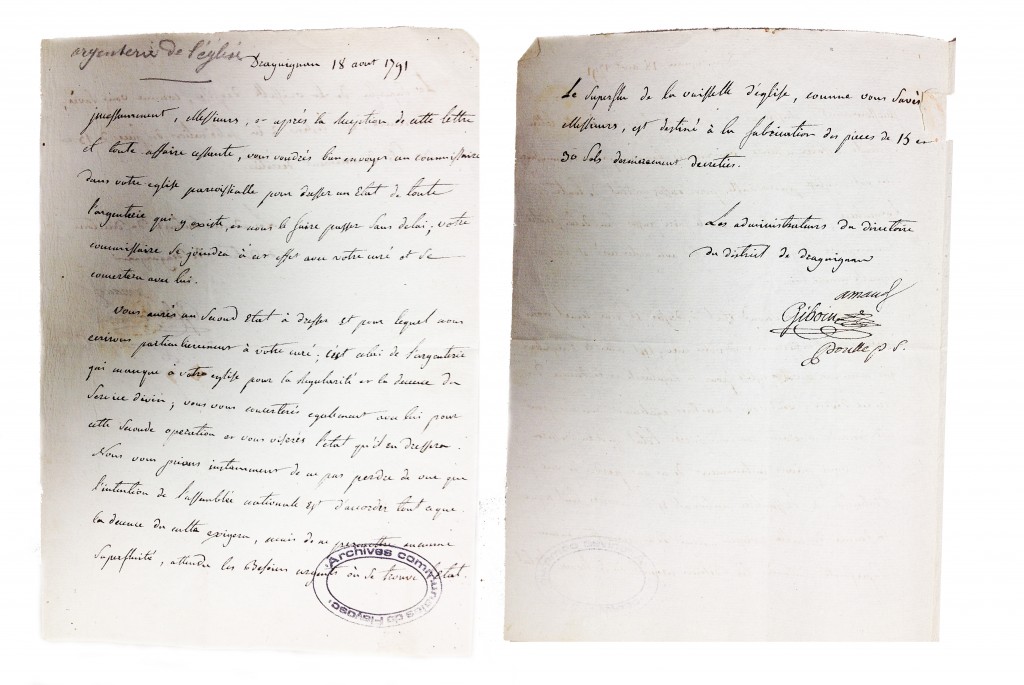 argenterie de l'église
Draguignan 18 aout 1791
incessamment, Messieurs, et après la reception de cette lettre
et toute affaire cessante, vous voudrés bien envoyer un commissaire
dans votre eglise paroissialle pour dresser un Etat de toute
l'argenterie qui y existe, et nous le faire passer sans delai; votre
commissaire se joindra à cet effet avec votre curé et se
concertera avec lui.
Vous aurés un second Etat à dresser Et pour lequel nous
ecrivons particulierement à votre curé; c'est celui de l'argenterie
qui manque à votre eglise pour la regularité et la decence du
service divin; vous vous concerterés egalement avec lui pour
cette seconde operation et vous viserés l'état qu'il en dressera.
Nous vous prions instamment de ne pas perdre de vue que
l'intention de l'assemblée nationale Est d'accorder tout ce que
la decence du culte exigera, mais de ne permettre aucune
superfluité, attendu les Besoins urgents où se trouve l'état.
Archives communales de Flayosc
Le superflu de la vaisselle d'église, comme vous savés
Messieurs, est destiné à la fabrication des pieces de 15 et
30 sols dernierement decretées.
Les administrateurs du directoire
du district de draguignan
amaud
Giboin
poulle p s.